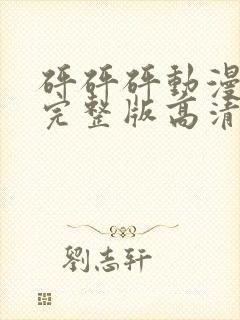 砰砰砰動漫
完整版高清
劉志軒